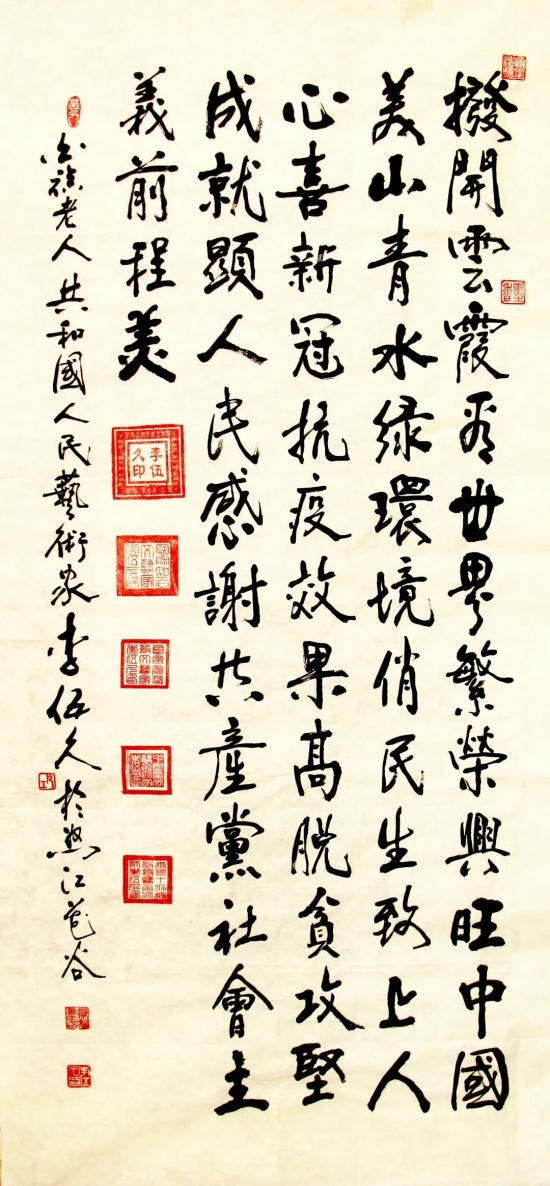 撥開雲霞看世界繁榮興旺中國
美山青水绿環境俏民生致上人
心喜新冠抗疫效果高脱貧攻堅
成就顯人民感謝共産黨社會主
義前程美
李伍久印
白族老人共和國人民藝術家李伍久於怒江花谷